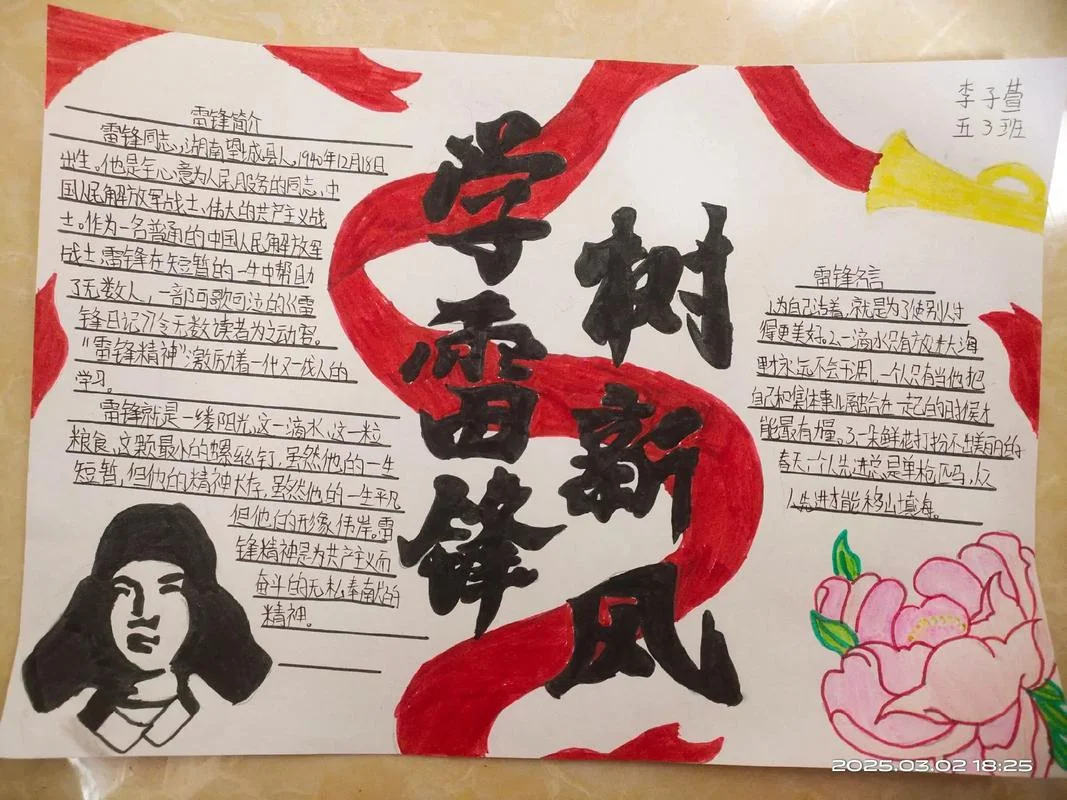 李子萱
五3班
学雷锋
树新风
雷锋简介
雷锋同志,湖南望城县人,1940年12月18日
出生。他是全心意为人民服务的同志,中
国人民解放军战士、伟大的共产主义战
士。作为一名普通的中国人民解放军
战士,雷锋在短暂的一生中帮助
了无数人,一部可歌可泣的《雷
锋日记》令无数读者为之动容。
"雷锋精神"激励着一代又一代人的
学习。
雷锋就是一缕阳光,这一滴水,这一粒
粮食,这颗最小的螺丝钉,虽然他的一生
短暂,但他的精神长存,虽然他的一生平凡
但他的形象伟岸。雷
锋精神是为共产主义而
奋斗的无私奉献的
精神。
雷锋名言
1、为自己活着,就是为了使别人过
得更美好。2、一滴水只有放进大海
里才永远不会干涸,一个人只有当他把
自己和集体事业融合在一起的时候才
能最有力量。3、一朵鲜花打扮不出美丽的
春天,一个人先进总是单枪匹马,众
人先进才能移山填海。
2025.03.02 18:25